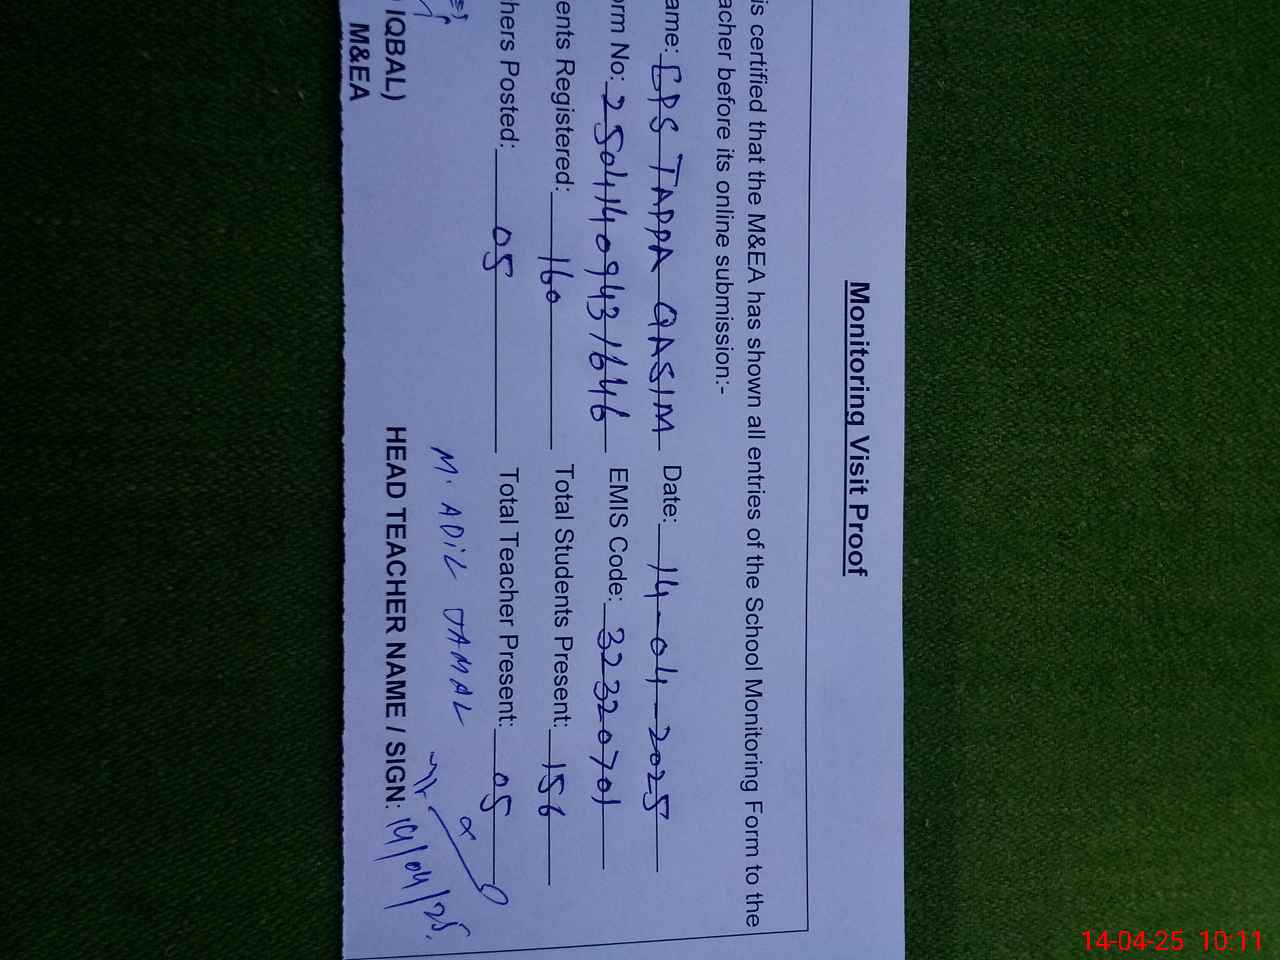 Monitoring Visit Proof
is certified that the M&EA has shown all entries of the School Monitoring Form to the
acher before its online submission:-
ame: GPS TAPPA QASIM Date: 14-04-2025
orm No: 2504140943 1646 EMIS Code: 32320701
ents Registered: 160 Total Students Present: 156
hers Posted: 05 Total Teacher Present: 05
M. ADIL JAMAL
IQBAL) HEAD TEACHER NAME / SIGN: 14/04/25.
M&EA
14-04-25 10:11